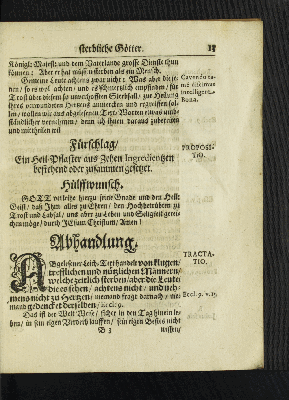 sterbliche Götter. 13
Königl: Majest: und dem Vaterlande grosse Dienste thun
können: Aber er hat müssen sterben als ein Mensch.
Gemeine Leute achtens zwar nicht: Was aber diese
den / so es wol achten / und es schmertzlich empfinden / für
Trost über diesen so unverhofften Sterbfall / zur Heilung
ihres verwundten Hertzens zumercken und zugreiffen
len / wollen wir aus abgelesenen Text-Worten etwas
ständlicher vernehmen / denn ich ihnen daraus zubereiten
und mittheilen wil
Cavendo
Fürschlag/
PROPOSI-
TIO.
Ein Heil-Pflaster aus Zehen Ingredientzen
bestehend oder zusammen gesetzet.
Hülffwunsch.
GOTT verleihe hierzu seine Gnade und den Heil:
Geist / daß Ihm alles zu Ehren / den Hochbetrübten zu
Trost und Labsal / uns aber zu Leben und Seligkeit gerei-
chen möge / durch JEsum Christum / Amen!
Abhandlung.
TRACTA-
TIO.
Abgelesener Leich-Text handelt von klugen/
trefflichen und nützlichen Männern/
welche zeitlich sterben / aber die Leute
die es sehen / achtens nicht: und neh-
mens nicht zu Hertzen / niemand fragt darnach / nie-
mand gedencket derselben /
Das ist der Welt Weise / sicher in den Tag hinein le-
ben / in sein eigen Verderb lauffen / sein eigen Bestes nicht
B 3 wissen/